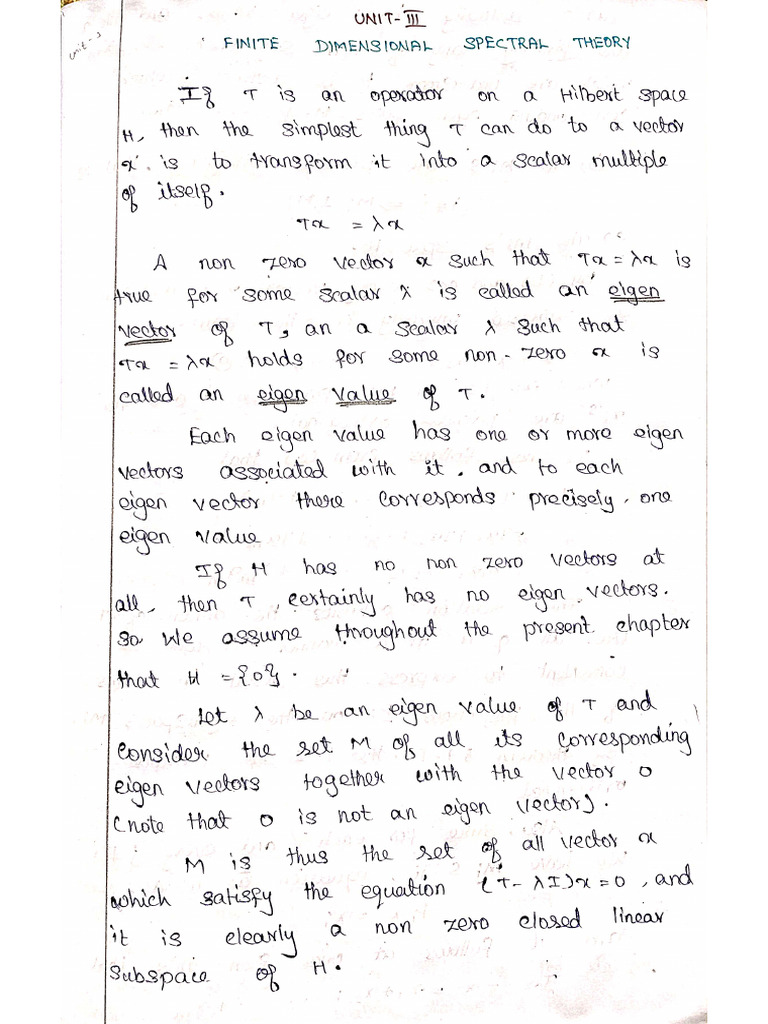 UNIT-III
unit-3
FINITE DIMENSIONAL SPECTRAL THEORY
If T is an operator on a Hilbert space
H, then the simplest thing T can do to a vector
x is to transform it into a scalar multiple
of itself.
Tx = λx
A non zero vector x such that Tx = λx is
true for some scalar λ is called an eigen
vector of T, an a scalar λ such that
Tx = λx holds for some non-zero x is
called an eigen value of T.
Each eigen value has one or more eigen
vectors associated with it, and to each
eigen vector there corresponds precisely one
eigen value
If H has no non zero vectors at
all, then T certainly has no eigen vectors.
so we assume throughout the present chapter
that H = {0}.
Let λ be an eigen value of T and
consider the set M of all its corresponding
eigen vectors together with the vector 0
(note that 0 is not an eigen vector).
M is thus the set of all vector x
which satisfy the equation (T-λI)x=0, and
it is clearly a non zero closed linear
subspace of H.